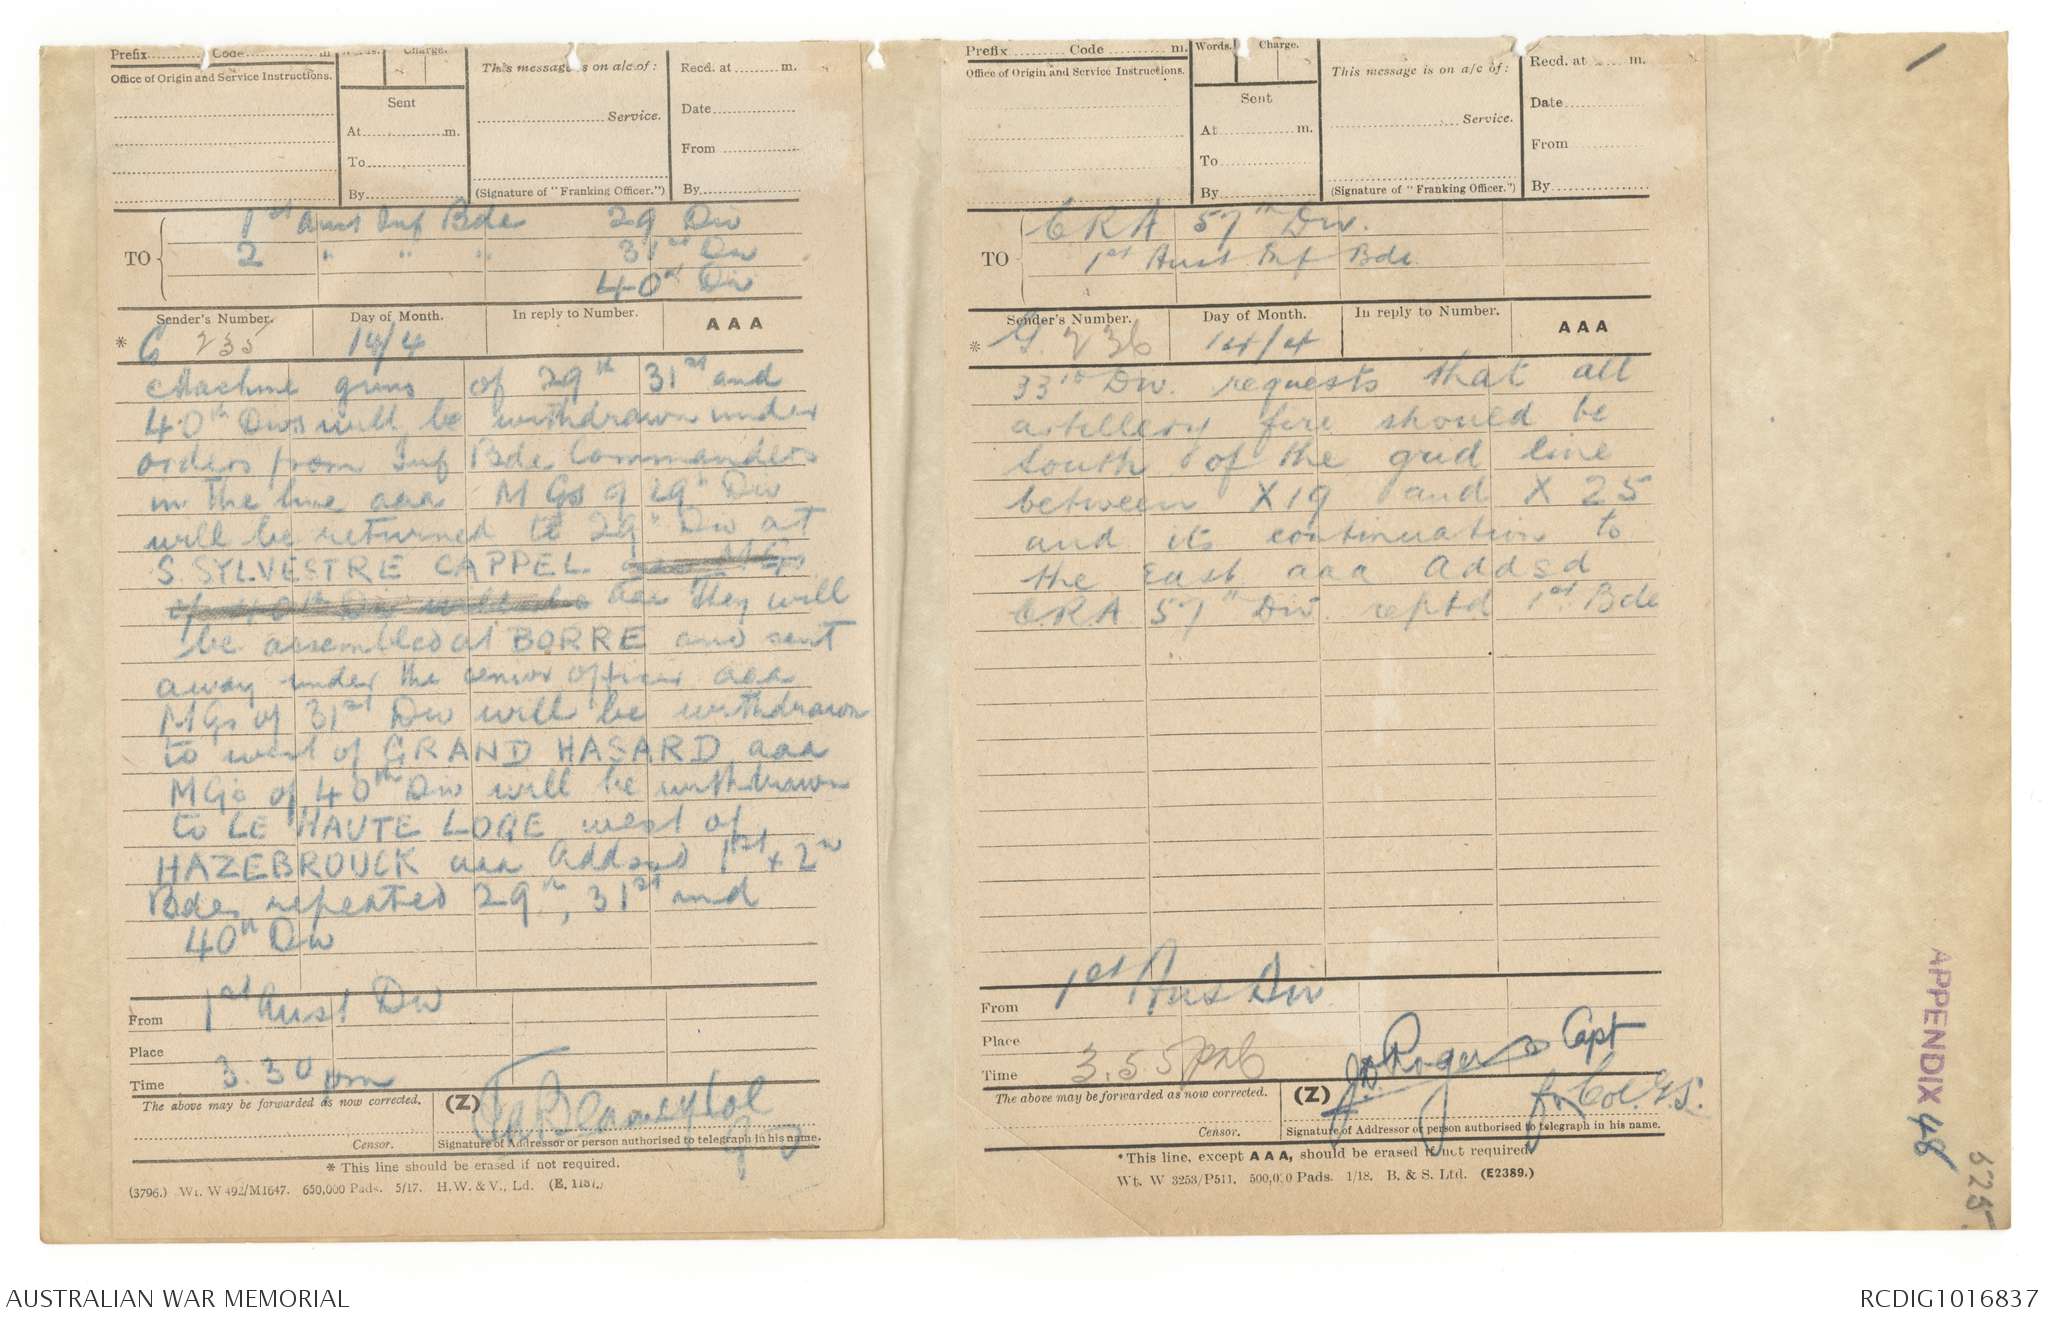 Prefix......... Code ............ m
Words. Charge.
This message is on a/c of :
Recd. at ......... m.
Office of Origin and Service Instructions.
Sent
Date
Service.
At ............ m.
From
To
By
(Signature of "Franking Officer.")
By
TO
1st Aust Inf Bde 29 Div
2 " " " 31st Div
40th Div
Sender's Number. Day of Month. In reply to Number. AAA
* G 235 14/4
Machine guns of 29th 31st and
40th Divs will be withdrawn under
orders from Inf Bde Commanders
in the line aaa MGs of 29th Div
will be returned to 29th Div at
S. SYLVESTRE CAPPEL aaa MGs
of 40th Div will be aaa They will
be assembled at BORRE and sent
away under the senior officer aaa
MGs of 31st Div will be withdrawn
to west of GRAND HASARD aaa
MGs of 40th Div will be withdrawn
to LE HAUTE LOGE west of
HAZEBROUCK aaa Addsed 1st + 2n
Bdes repeated 29th, 31st and
40th Div
From 1st Aust Div
Place
Time 3.30 pm
The above may be forwarded as now corrected. (Z) TABlamey Col
GS
Censor. Signature of Addressor or person authorised to telegraph in his name.
* This line should be erased if not required.
(3796.) Wt. W 492/M1647. 650,000 Pads. 5/17. H.W. & V., Ld. (E. 1187.)
Prefix ......... Code ............ m.
Words. Charge.
This message is on a/c of :
Recd. at ..... m.
Office of Origin and Service Instructions.
Sent
Date
Service.
At ............ m.
From
To
By
(Signature of "Franking Officer.")
By
TO
CRA 57th Div.
1st Aust Inf Bde
Sender's Number. Day of Month. In reply to Number. AAA
* G. 236 14/4
33rd Div. requests that all
artillery fire should be
South of the grid line
between X19 and X 25
and its continuation to
the East aaa Addsd
CRA 57th Div reptd 1st Bde
From 1st Aus Div
Place
Time 3.55 pm
The above may be forwarded as now corrected. (Z) JD Rogers Capt
for Col. G.S.
Censor. Signature of Addressor or person authorised to telegraph in his name.
* This line, except AAA, should be erased if not required.
Wt. W 3253/P511. 500,000 Pads. 1/18. B. & S. Ltd. (E2389.)
APPENDIX 48
AUSTRALIAN WAR MEMORIAL
RCDIG1016837